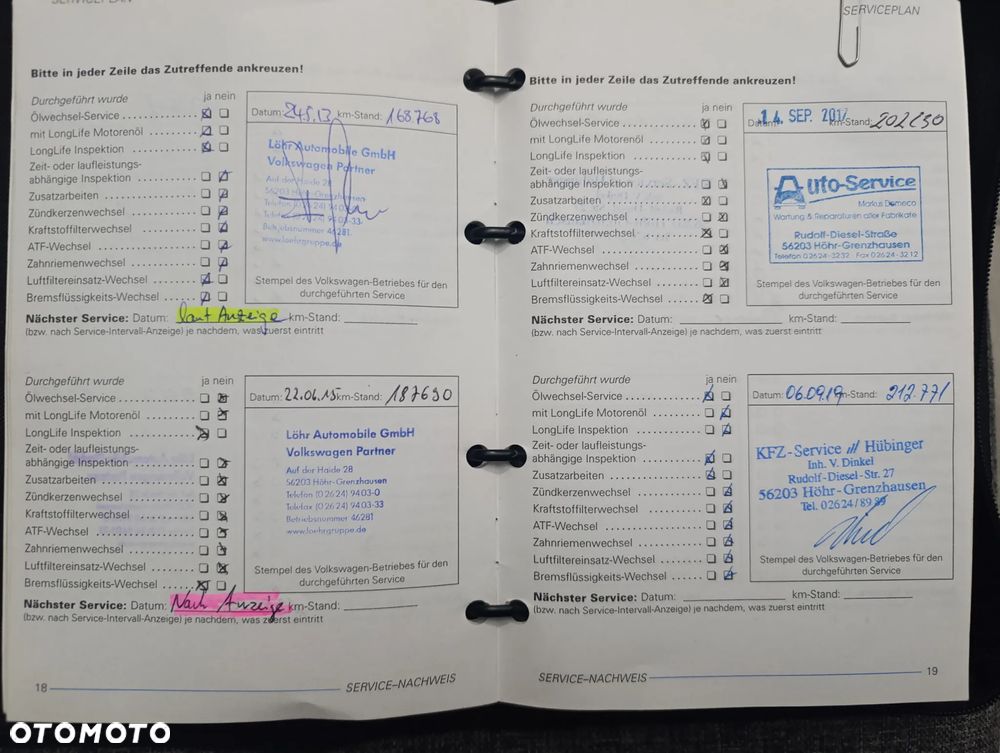 SERVICEPLAN
Bitte in jeder Zeile das Zutreffende ankreuzen!
Durchgeführt wurde ja nein
Ölwechsel-Service
mit LongLife Motorenöl
LongLife Inspektion
Zeit- oder laufleistungs-
abhängige Inspektion
Zusatzarbeiten
Zündkerzenwechsel
Kraftstoffilterwechsel
ATF-Wechsel
Zahnriemenwechsel
Luftfiltereinsatz-Wechsel
Bremsflüssigkeits-Wechsel
Datum: 24.5.13 km-Stand: 168768
Löhr Automobile GmbH
Volkswagen Partner
Auf der Haide 28
56203 Höhr-Grenzhausen
Telefon (0 26 24) 94 03-0
Telefax (0 26 24) 94 03-33
Betriebsnummer 46281
www.loehrgruppe.de
Stempel des Volkswagen-Betriebes für den
durchgeführten Service
Nächster Service: Datum: laut Anzeige km-Stand:
(bzw. nach Service-Intervall-Anzeige) je nachdem, was zuerst eintritt
Durchgeführt wurde ja nein
Ölwechsel-Service
mit LongLife Motorenöl
LongLife Inspektion
Zeit- oder laufleistungs-
abhängige Inspektion
Zusatzarbeiten
Zündkerzenwechsel
Kraftstoffilterwechsel
ATF-Wechsel
Zahnriemenwechsel
Luftfiltereinsatz-Wechsel
Bremsflüssigkeits-Wechsel
Datum: 22.06.15 km-Stand: 187690
Löhr Automobile GmbH
Volkswagen Partner
Auf der Haide 28
56203 Höhr-Grenzhausen
Telefon (0 26 24) 94 03-0
Telefax (0 26 24) 94 03-33
Betriebsnummer 46281
www.loehrgruppe.de
Stempel des Volkswagen-Betriebes für den
durchgeführten Service
Nächster Service: Datum: Nach Anzeige km-Stand:
(bzw. nach Service-Intervall-Anzeige) je nachdem, was zuerst eintritt
18 SERVICE–NACHWEIS
SERVICEPLAN
Bitte in jeder Zeile das Zutreffende ankreuzen!
Durchgeführt wurde ja nein
Ölwechsel-Service
mit LongLife Motorenöl
LongLife Inspektion
Zeit- oder laufleistungs-
abhängige Inspektion
Zusatzarbeiten
Zündkerzenwechsel
Kraftstoffilterwechsel
ATF-Wechsel
Zahnriemenwechsel
Luftfiltereinsatz-Wechsel
Bremsflüssigkeits-Wechsel
Datum: 14. SEP. 2017 km-Stand: 202230
Auto-Service
Markus Domeco
Wartung & Reparaturen aller Fabrikate
Rudolf-Diesel-Straße
56203 Höhr-Grenzhausen
Telefon 02624-3232 · Fax 02624-3212
Stempel des Volkswagen-Betriebes für den
durchgeführten Service
Nächster Service: Datum: km-Stand:
(bzw. nach Service-Intervall-Anzeige) je nachdem, was zuerst eintritt
Durchgeführt wurde ja nein
Ölwechsel-Service
mit LongLife Motorenöl
LongLife Inspektion
Zeit- oder laufleistungs-
abhängige Inspektion
Zusatzarbeiten
Zündkerzenwechsel
Kraftstoffilterwechsel
ATF-Wechsel
Zahnriemenwechsel
Luftfiltereinsatz-Wechsel
Bremsflüssigkeits-Wechsel
Datum: 06.09.19 km-Stand: 212.771
KFZ-Service Hübinger
Inh. V. Dinkel
Rudolf-Diesel-Str. 27
56203 Höhr-Grenzhausen
Tel. 02624/8989
Stempel des Volkswagen-Betriebes für den
durchgeführten Service
Nächster Service: Datum: km-Stand:
(bzw. nach Service-Intervall-Anzeige) je nachdem, was zuerst eintritt
SERVICE–NACHWEIS 19
OTOMOTO